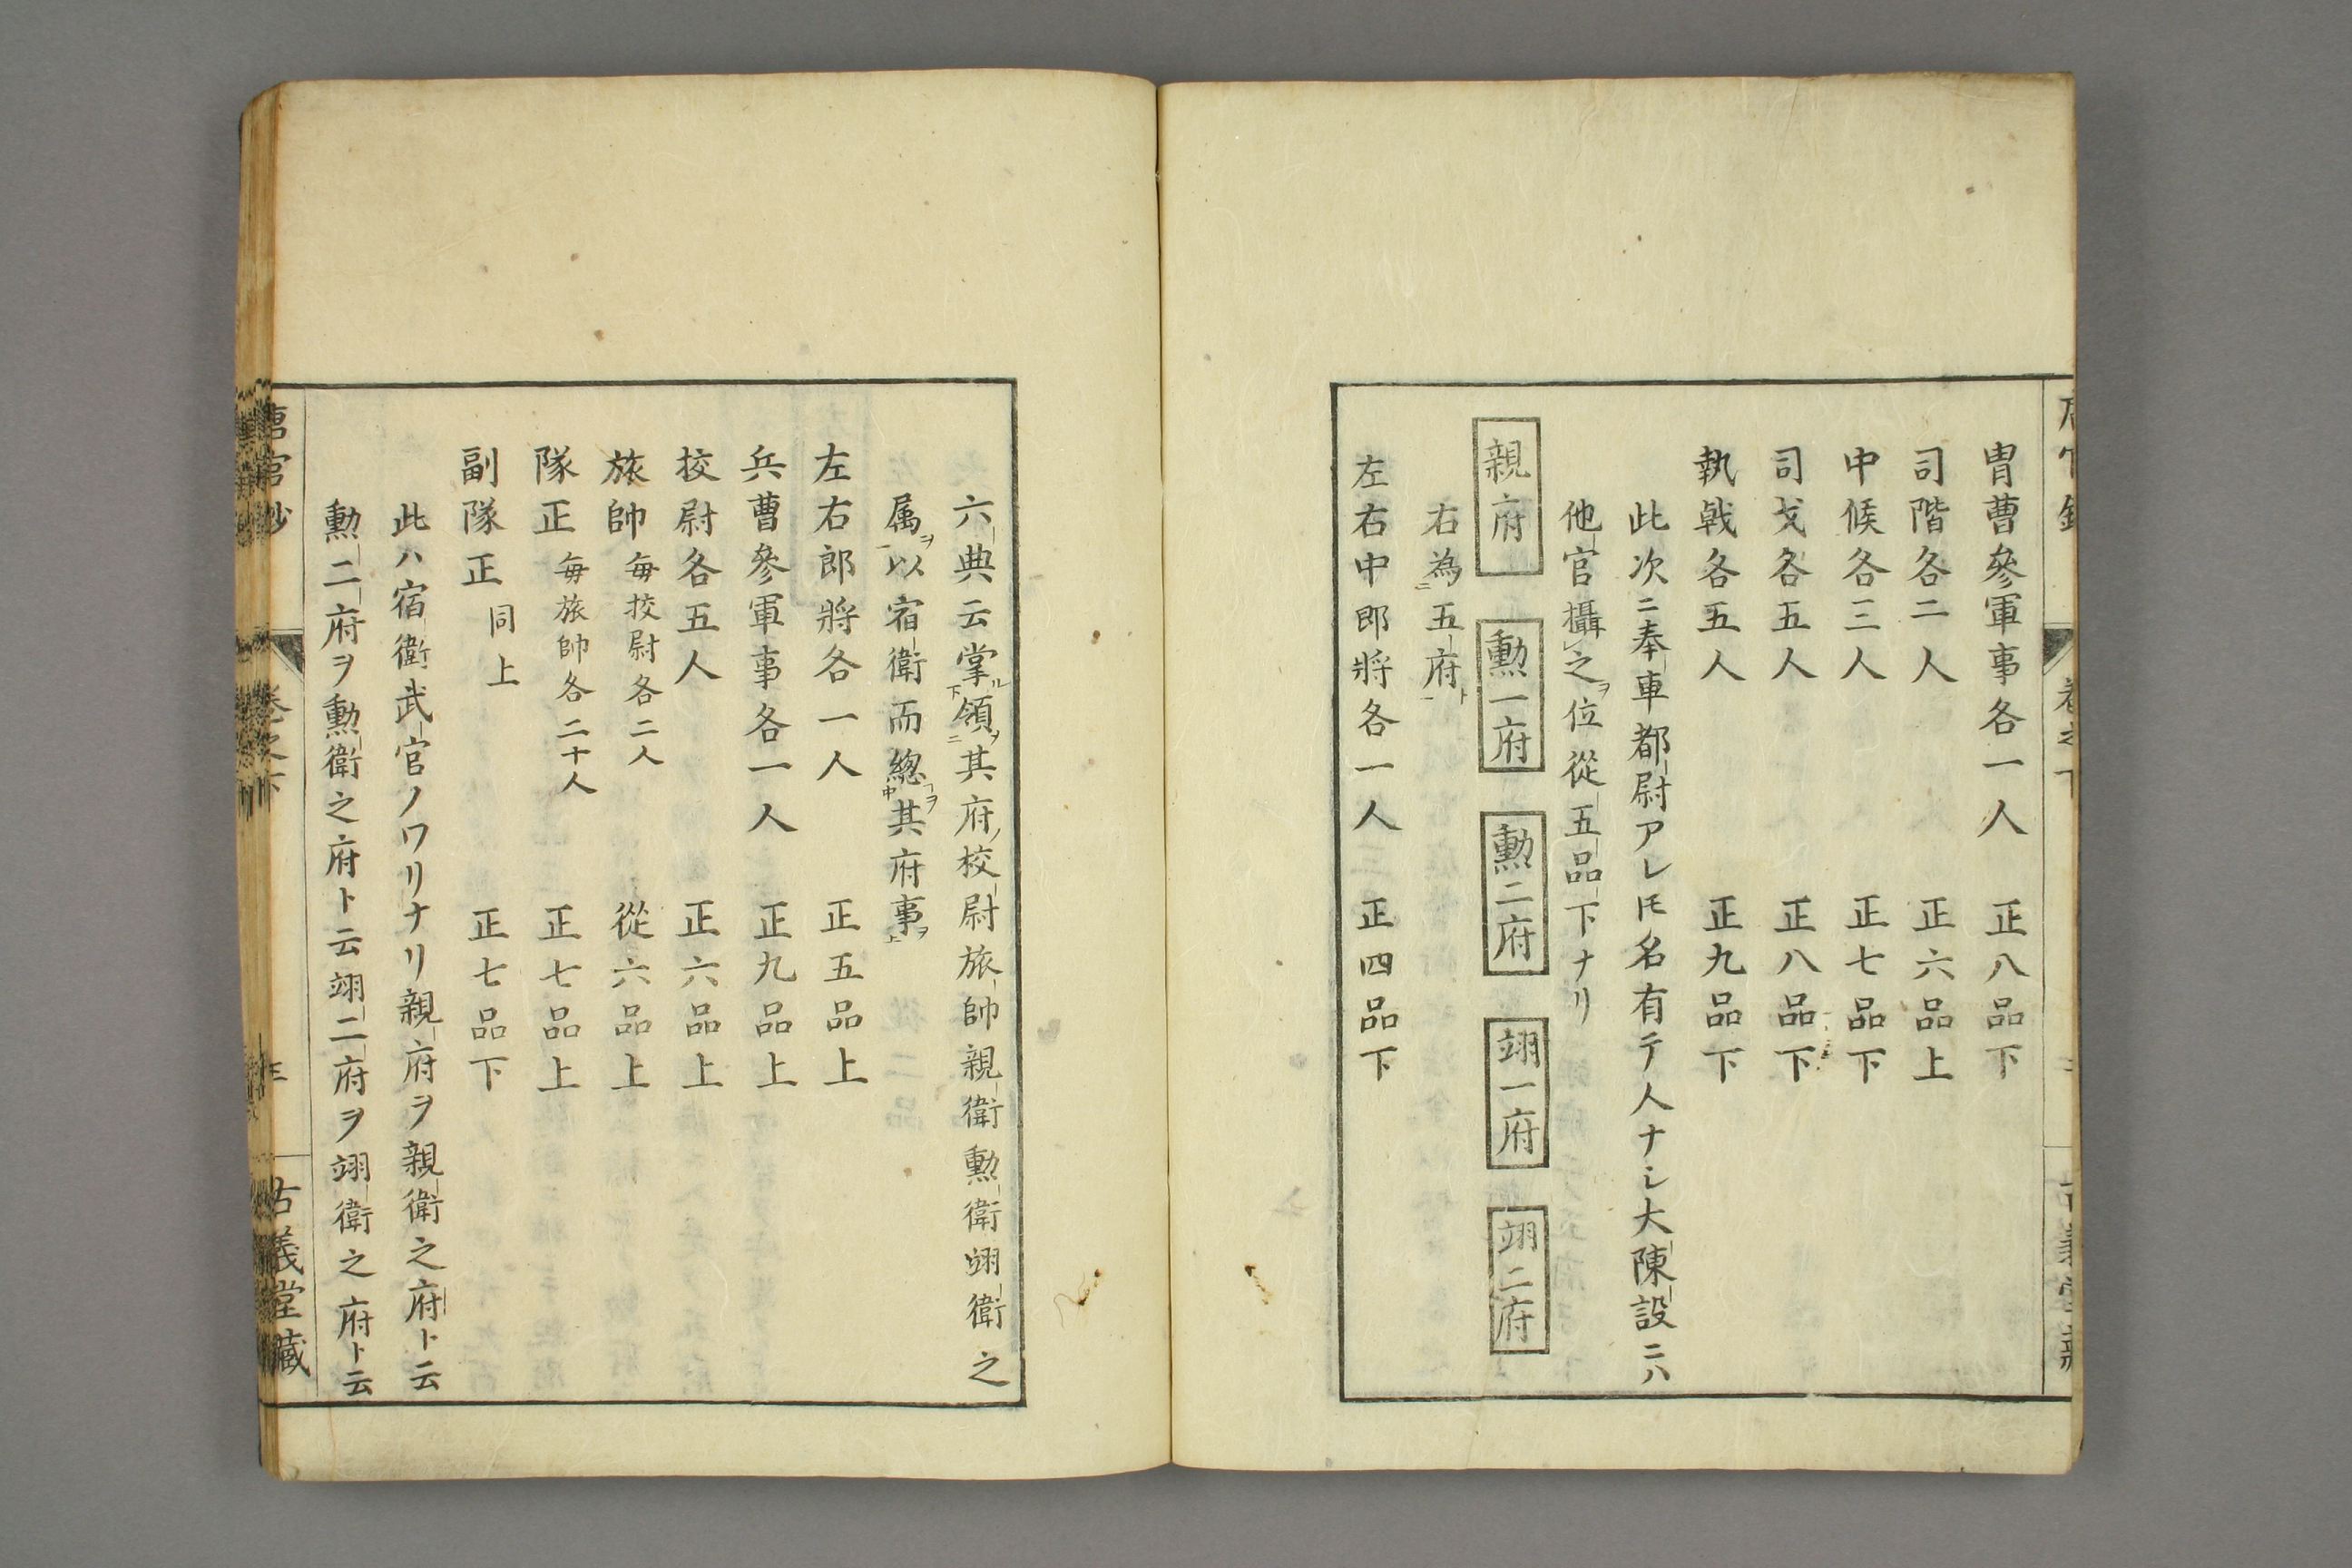 冑曹參軍事各一人　正八品下
司階各二人　正六品上
中候各三人　正七品下
司戈各五人　正八品下
執戟各五人　正九品下
此次ニ奉車都尉アレ𪜈名有テ人ナシ大陳設ニハ
他官攝之ヲ位從五品下ナリ
親府　勲一府　勲二府　翊一府　翊二府
右為五府ト
左右中郎將各一人　正四品下
六典云掌領其府校尉旅帥親衛勲衛翊衛之
属以宿衛而總其府事
左右郎將各一人　正五品上
兵曹參軍事各一人　正九品上
挍尉各五人　正六品上
旅帥　毎挍尉各二人　從六品上
隊正　毎旅帥各二十人　正七品上
副隊正　同上　正七品下
此ハ宿衛武官ノワリナリ親府ヲ親衛之府ト云
勲二府ヲ勲衛之府ト云翊二府ヲ翊衛之府ト云
古義堂藏